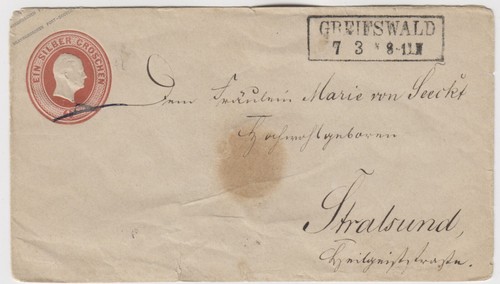 EIN SILBER GROSCHEN
GREIFSWALD
7 3 * 8-11 V
Dem Fräulein Marie von Seeckt
Hochwohlgeboren
Stralsund,
Heilgeiststraße.